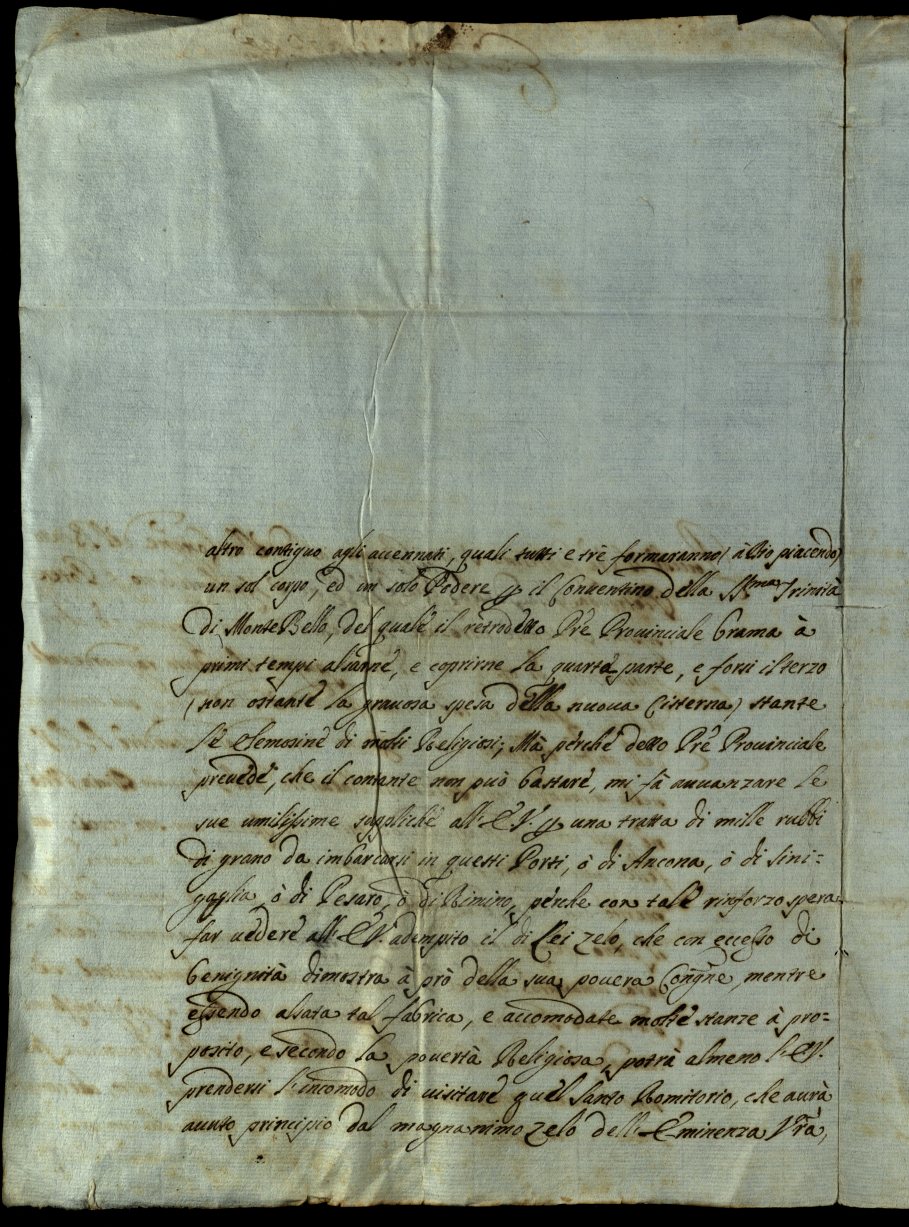 altro contiguo agli accennati, quali tutti e trè formaranno (à Dio piacendo)
un sol corpo, ed un solo Podere p il Conventino della SSma Trinità
di Monte Bello, del quale il retrodetto Pre Provinciale brama à
primi tempi alsarne, e coprirne la quarta parte, e forsi il terzo
(non ostante la gravosa spesa della nuova Cisterna) stante
le Elemosine di molti Religiosi; Mà perche detto Pre Provinciale
prevede, che il contante non può bastare, mi fà avvanzare le
sue umilissime suppliche all'E.V. p una tratta di mille rubbi
di grano da imbarcarsi in questi Porti, ò di Ancona, ò di Sini=
gaglia, ò di Pesaro, ò di Rimino, perche con tale rinforzo spera
far vedere all'E.V. adempito il di Lei zelo, che con eccesso di
benignità dimostra à prò della sua povera Congne, mentre
essendo alsata tal fabrica, e accomodate molte stanze à pro=
posito, e secondo la povertà Religiosa, potrà almeno l'E.V.
prendersi l'incomodo di visitare quel Santo Romitorio, che avrà
avuto principio dal magnanimo zelo dell'Eminenza Vra,